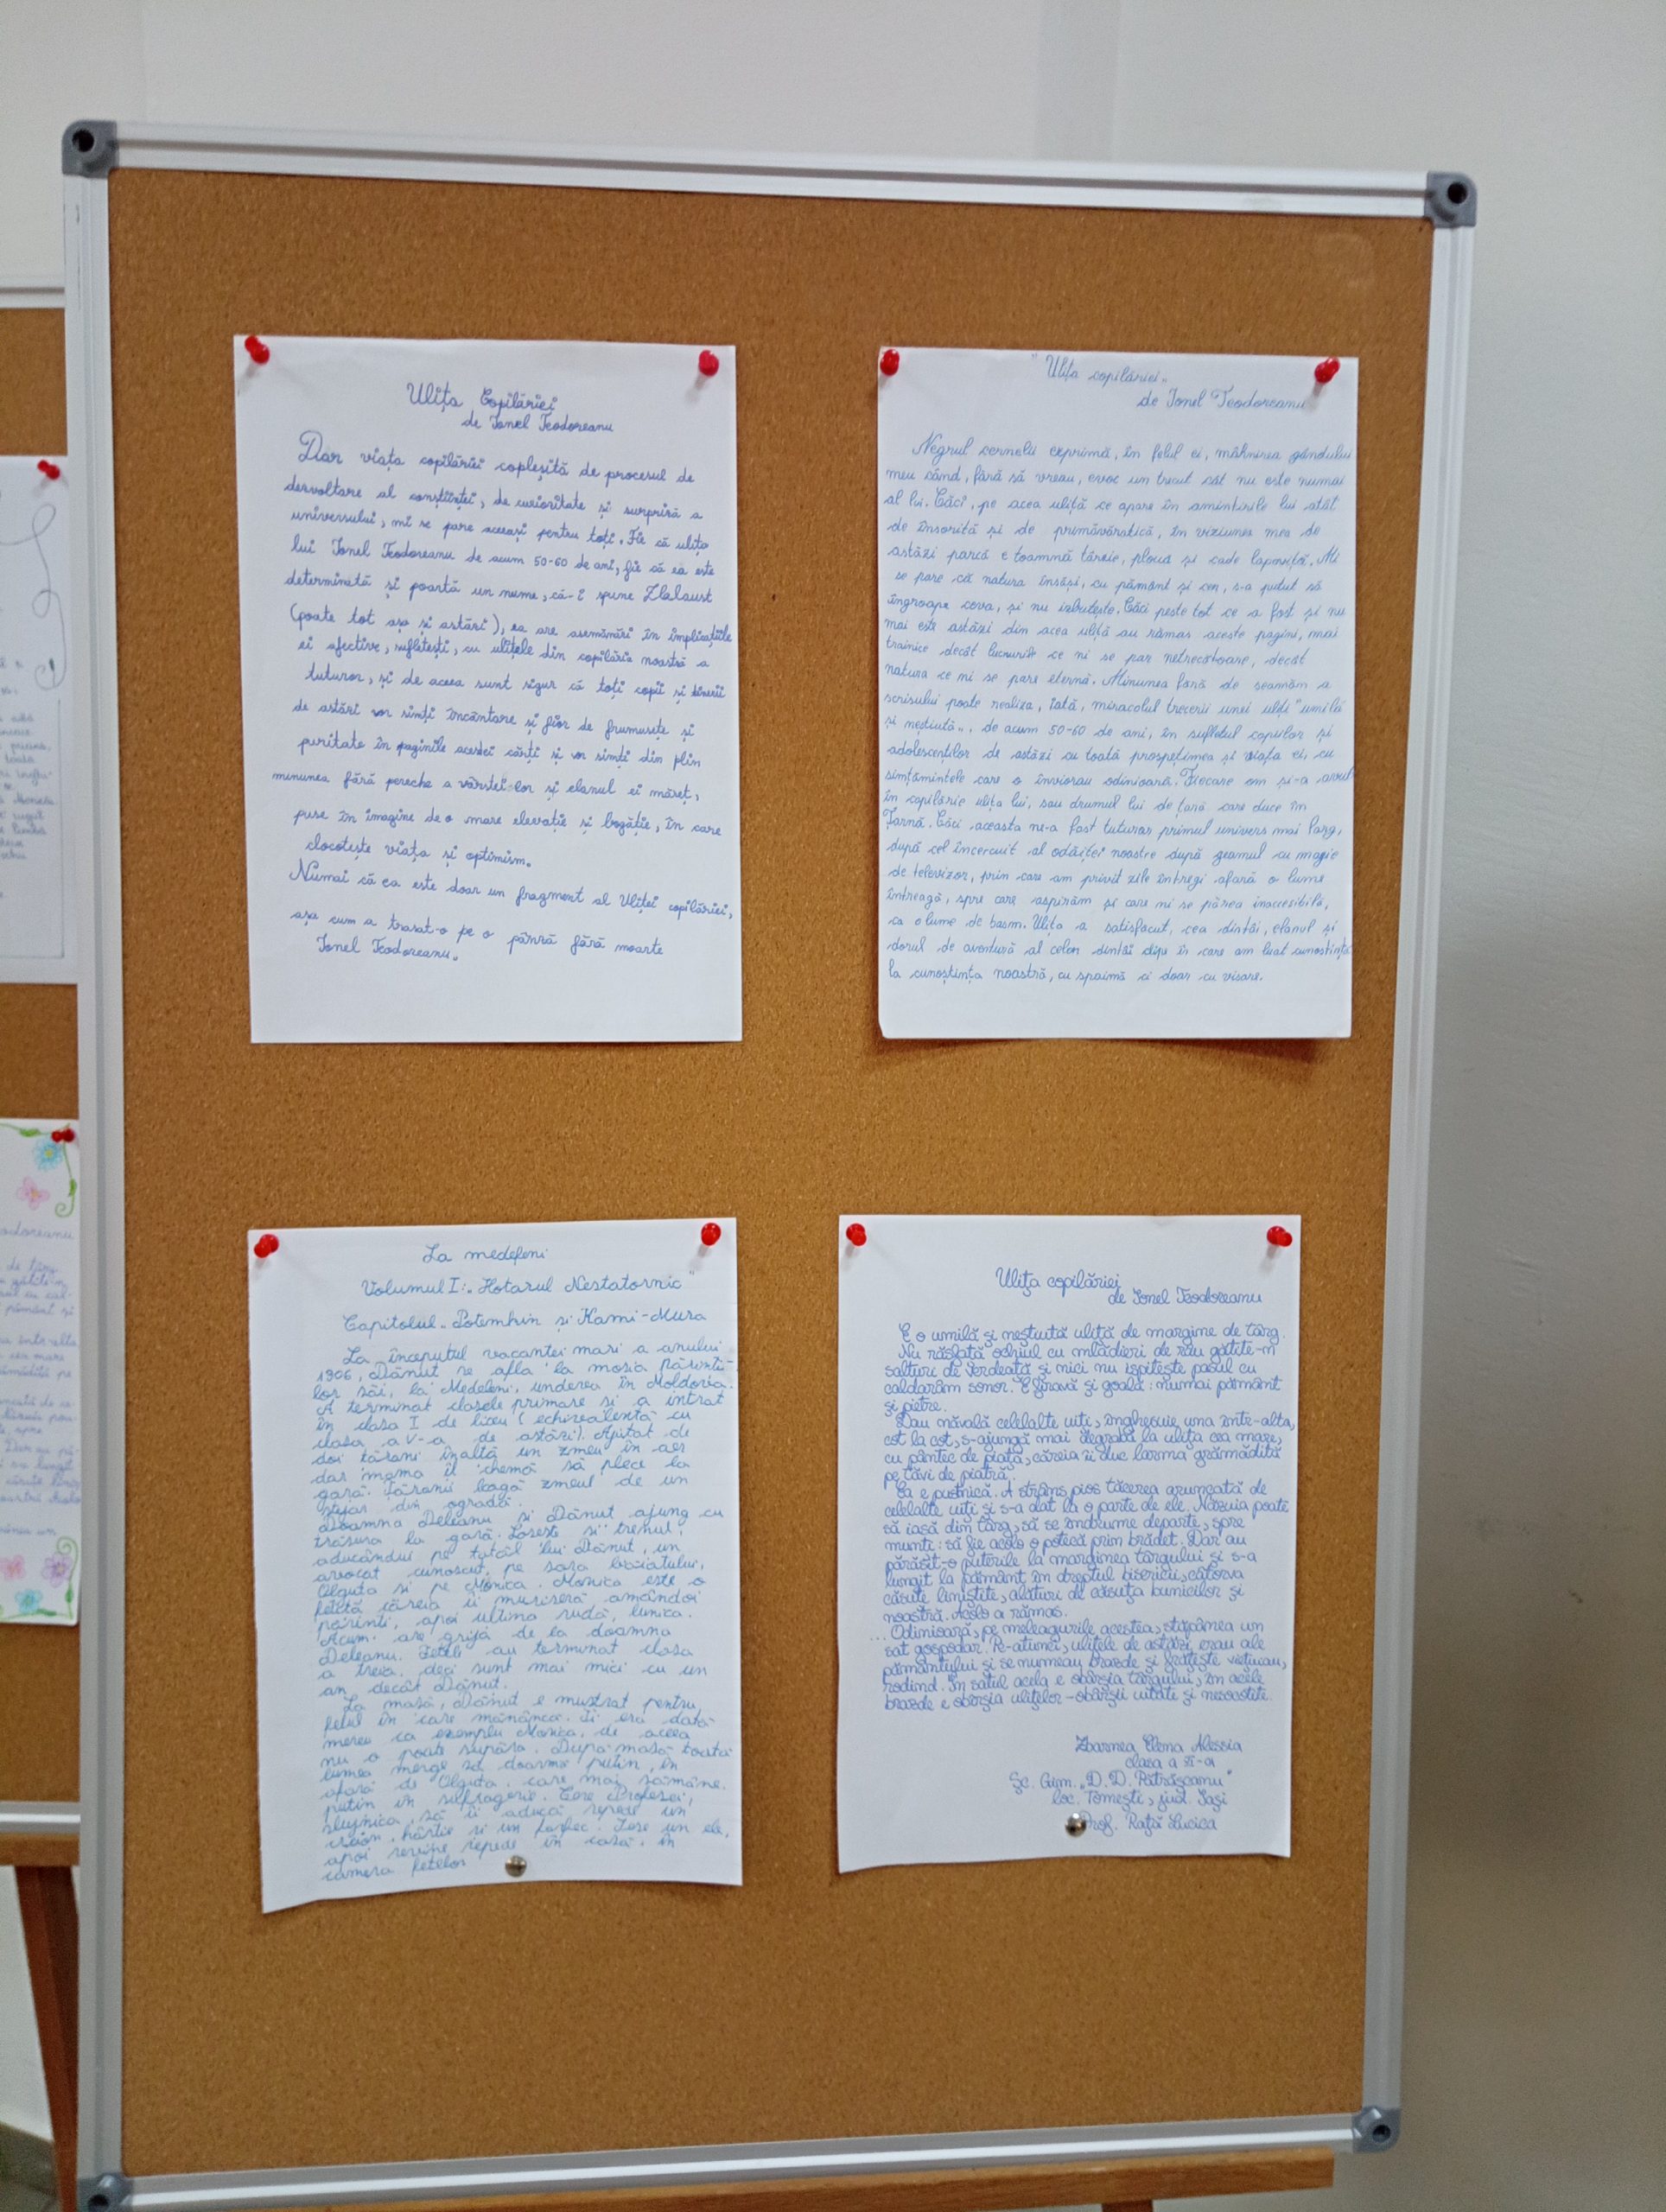 Ulița Copilăriei
de Ionel Teodoreanu
Dar viața copilăriei copleșită de procesul de
dezvoltare al conștiinței, de curiozitate și surpriză a
universului, mi se pare aceeași pentru toți. Fie că ulița
lui Ionel Teodoreanu de acum 50-60 de ani, fie că ea este
determinată și poartă un nume, că-i spune Zlataust
(poate tot așa și astăzi), ea are asemănări în implicațiile
ei afective, sufletești, cu ulițele din copilăria noastră a
tuturor, și de aceea sunt sigur că toți copii și tinerii
de astăzi vor simți încântare și fior de frumusețe și
puritate în paginile acestei cărți și vor simți din plin
minunea fără pereche a vârstei lor și elanul ei măreț,
puse în imagine de o mare elevație și bogăție, în care
clocotește viața și optimism.
Numai că ea este doar un fragment al Uliței copilăriei,
așa cum a trasat-o pe o pânză fără moarte
Ionel Teodoreanu.
"Ulița copilăriei"
de Ionel Teodoreanu
Negrul cernelii exprimă, în felul ei, mâhnirea gândului
meu când, fără să vreau, evoc un trecut cât nu este numai
al lui. Căci, pe acea uliță ce apare în amintirile lui atât
de însorită și de primăvăratică, în viziunea mea de
astăzi parcă e toamnă târzie, plouă și cade lapoviță. Mi
se pare că natura însăși, cu pământ și cer, s-a putut să
îngroape ceva, și nu izbutește. Căci peste tot ce a fost și nu
mai este astăzi din acea uliță au rămas aceste pagini, mai
trainice decât lucrurile ce ni se par netrecătoare, decât
natura ce ni se pare eternă. Minunea fără de seamăn a
scrisului poate realiza, iată, miracolul trecerii unei uliți "umile
și neștiută", de acum 50-60 de ani, în sufletul copiilor și
adolescenților de astăzi cu toată prospețimea și viața ei, cu
simțămintele care o înviorau odinioară. Fiecare om și-a avut
în copilărie ulița lui, sau drumul lui de țară care duce în
Țarnă. Căci aceasta ne-a fost tuturor primul univers mai larg,
după cel încercuit al odăiței noastre după geamul cu magie
de televizor, prin care am privit zile întregi afară o lume
întreagă, spre care aspirăm și care ni se părea inaccesibilă,
ca o lume de basm. Ulița a satisfăcut, cea dintâi, elanul și
dorul de aventură al celor dintâi clipe în care am luat cunoștință
la cunoștința noastră, cu spaimă ci doar cu visare.
La medeleni
Volumul I: „Hotarul Nestatornic"
Capitolul „Potemkin și Kami-Mura
La începutul vacantei mari a anului
1906, Dănuț se afla la moșia părinti-
lor săi, la Medeleni, undeva în Moldova.
A terminat clasele primare si a intrat
în clasa I de liceu (echivalentă cu
clasa a V-a de astăzi). Ajutat de
doi tărani înaltă un zmeu în aer
dar mama îl chemă să plece la
gară. Țăranii leagă zmeul de un
stejar din ogradă.
Doamna Deleanu si Dănut ajung cu
trăsura la gară. Soseste si trenul,
aducându-l pe tatăl lui Dănut, un
avocat cunoscut, pe sora băiatului,
Olguta si pe Monica. Monica este o
fetită căreia îi muriseră amândoi
părinti, apoi ultima rudă, bunica.
Acum are grijă de ea doamna
Deleanu. Fetele au terminat clasa
a treia, deci sunt mai mici cu un
an decât Dănut.
La masă, Dănut e mustrat pentru
felul în care mănâncă. Ii era dată
mereu ca exemplu Monica, de aceea
nu o poate supăra. După masă toată
lumea merge să doarmă putin, în
afară de Olguta, care mai rămâne
putin în sufragerie. Cere Profirei,
slujnica, să îi aducă repede un
creion, hârtie si un foarfec. Iese un ele,
apoi revine repede în casă, în
camera fetelor
Ulița copilăriei
de Ionel Teodoreanu
E o umilă și neștiută uliță de margine de târg.
Nu răsfață ochiul cu mlădieri de râu gătite-n
salturi de verdeață și nici nu ispitește pasul cu
caldarâm sonor. E firavă și goală: numai pământ
și pietre.
Dau năvală celelalte uliți, înghesuie una într-alta,
cot la cot, s-ajungă mai degrabă la ulița cea mare,
cu pântec de piață, căreia îi duc larma grămădită
pe tăvi de piatră.
Ea e pustnică. A strâns pios tăcerea aruncată de
celelalte uiți și s-a dat la o parte de ele. Năzuia poate
să iasă din târg, să se îndrume departe, spre
munți: să fie acolo o potecă prin brădet. Dar au
părăsit-o puterile la marginea târgului și s-a
lungit la pământ în dreptul bisericii, câtorva
căsuțe liniștite, alături de căsuța bunicilor și
noastră. Acolo a rămas.
... Odinioară, pe meleagurile acestea, stăpânea un
sat gospodar. Pe-atunci, ulițele de astăzi erau ale
pământului și se numeau brazde și frățește viețuiau,
rodind. În satul acela e obârșia târgului, în acele
brazde e obârșia ulițelor-obârșii uitate și nesocotite.
Zbarnea Elena Alessia
clasa a VI-a
Șc. Gim. „D. D. Pătrășcanu"
loc. Tomești, jud. Iași
Prof. Rață Lucica